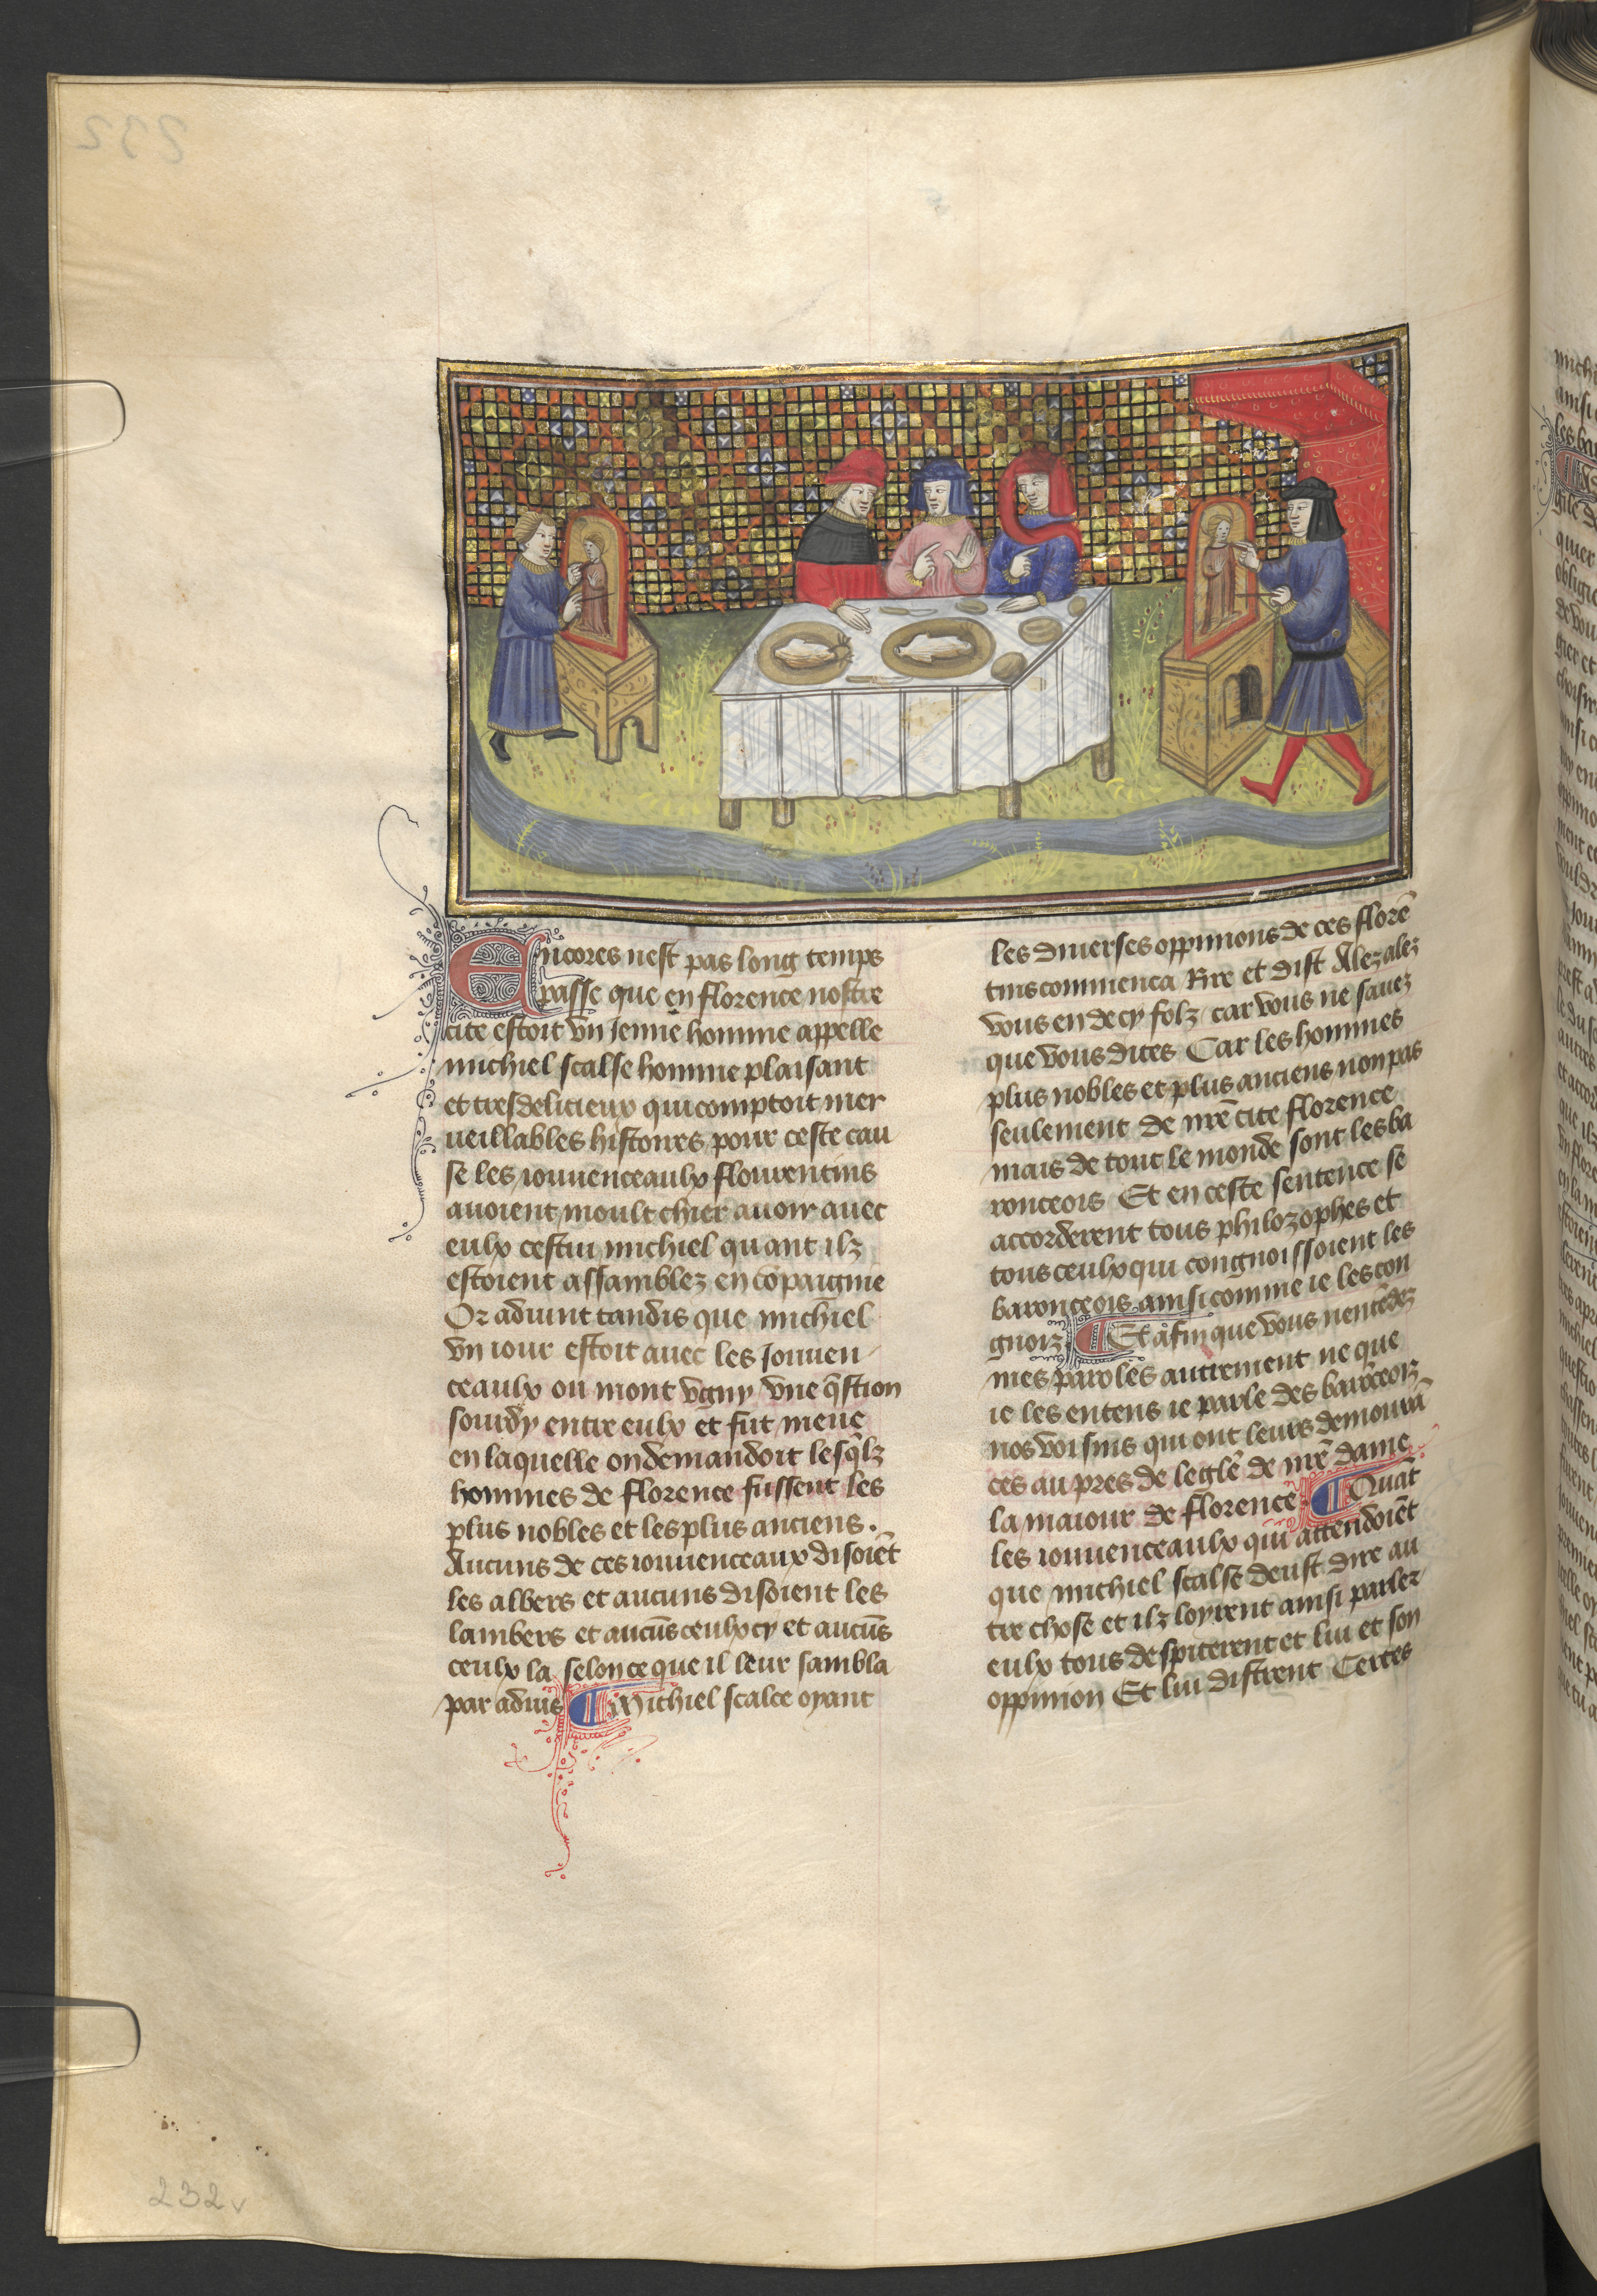 232
Encores nest pas long temps
passe que en florence nostre
cite estoit vn Jenne homme appelle
michiel scalse homme plaisant
et tresdelicieux qui comptoit mer
ueillables histoires pour ceste cau
se les iouuenceaulx flourentins
auoient moult chier auoir auec
eulx cestui michiel quant ilz
estoient assamblez en cōpaignie
Or aduint tandis que michiel
vn iour estoit auec les Jouuen
ceaulx ou mont vgny vne q̄stion
sourdy entre eulx et fut meue
en laquelle on demandoit lesq̄lz
hommes de florence fussent les
plus nobles et les plus anciens.
Aucuns de ces iouuenceaux disoiēt
les albers et aucuns disoient les
lambers et aucūs ceulx cy et aucūs
ceulx la selon ce que il leur sambla
par aduis ¶ Michiel scalce oyant
les diuerses oppinions de ces florē
tins commenca Rire et dist Alez alez
vous en de cy folz car vous ne sauez
que vous dites Car les hommes
plus nobles et plus anciens non pas
seulement de nr̄e cite florence
mais de tout le monde sont les ba
ronceois Et en ceste sentence se
accorderent tous philozophes et
tous ceulx qui congnoissoient les
baronceois ainsi comme ie les con
gnoiz ¶ Et afin que vous nentēdez
mes paroles autrement ne que
ie les entens ie parle des barōceoiz
nos voisins qui ont leurs demourā
ces au pres de leglē de nr̄e dame
la maiour de florence ¶ Quāt
les iouuenceaulx qui attendoiēt
que michiel scalse deust dire au
tre chose et ilz loyrent ainsi parler
eulx tous despiterent et lui et son
oppinion Et lui distrent Certes
232v